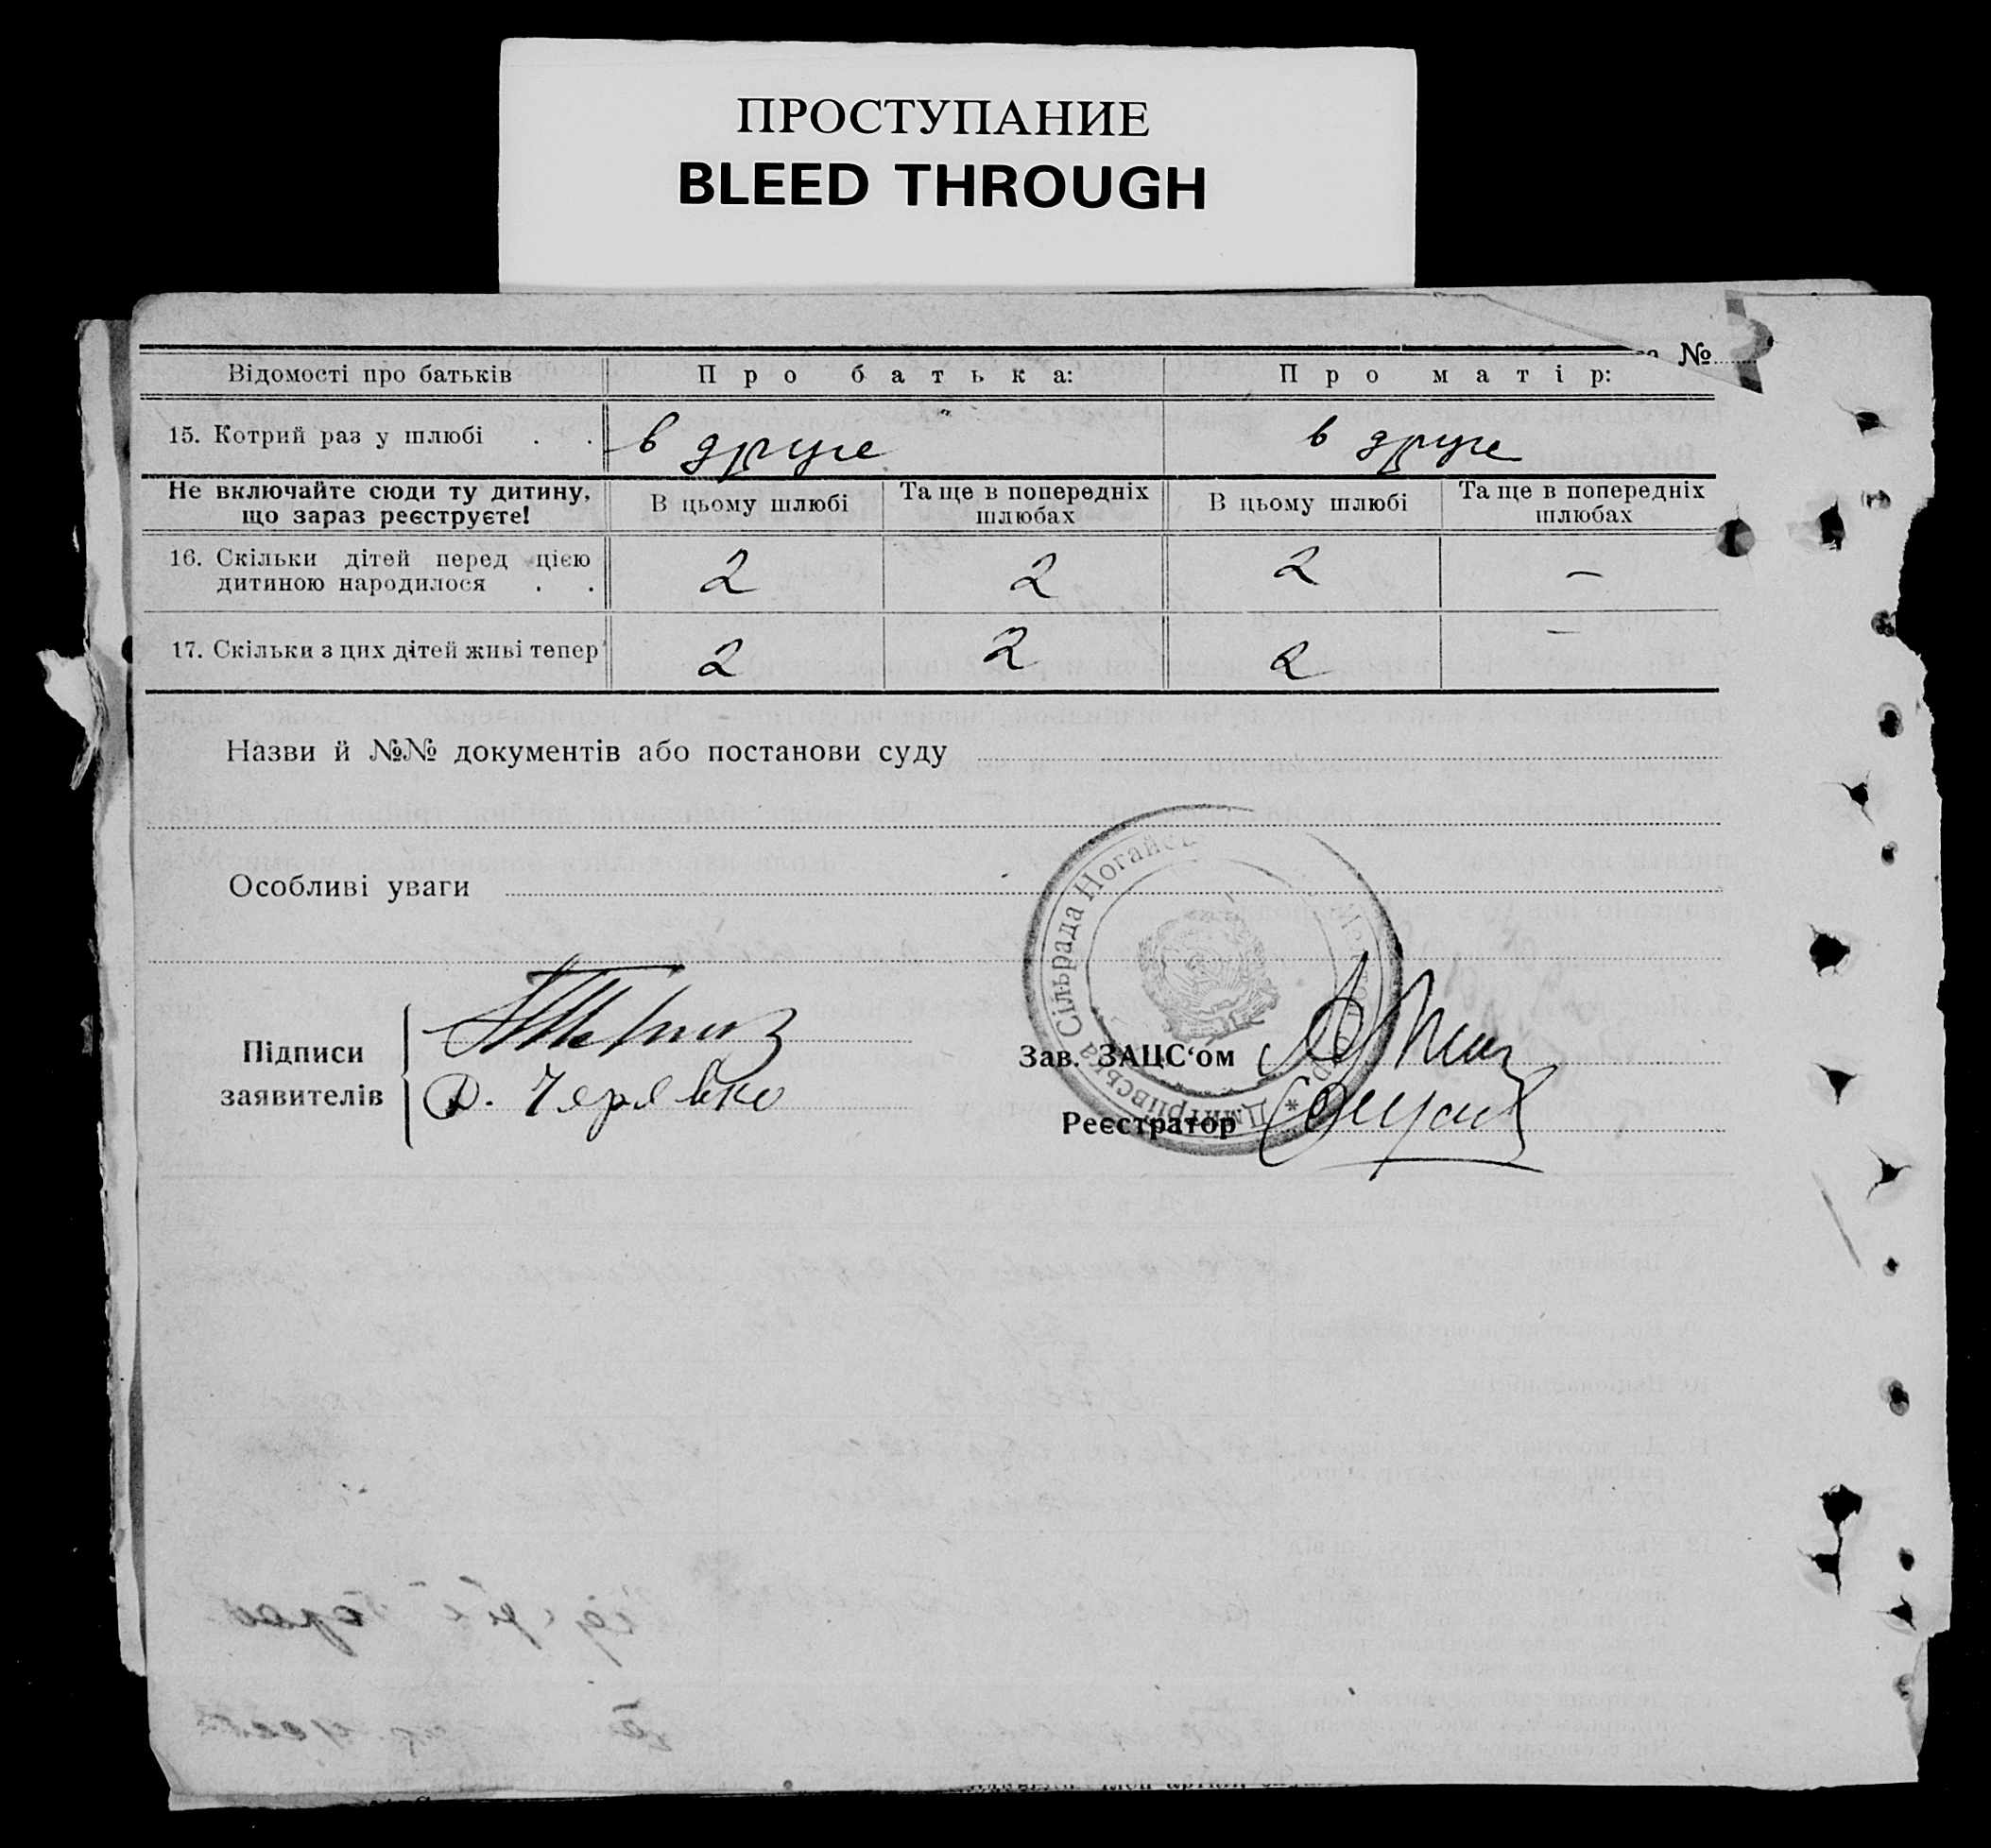 ПРОСТУПАНИЕ
BLEED THROUGH
№
Відомості про батьків Про батька: Про матір:
15. Котрий раз у шлюбі . . в друге в друге
Не включайте сюди ту дитину, що зараз реєструєте! В цьому шлюбі Та ще в попередніх шлюбах В цьому шлюбі Та ще в попередніх шлюбах
16. Скільки дітей перед цією дитиною народилося . . 2 2 2 —
17. Скільки з цих дітей живі тепер 2 2 2 —
Назви й №№ документів або постанови суду
Особливі уваги
Дмитрівська Сільрада Ногайськ
Підписи заявителів
Зав. ЗАЦС‘ом
Реєстратор